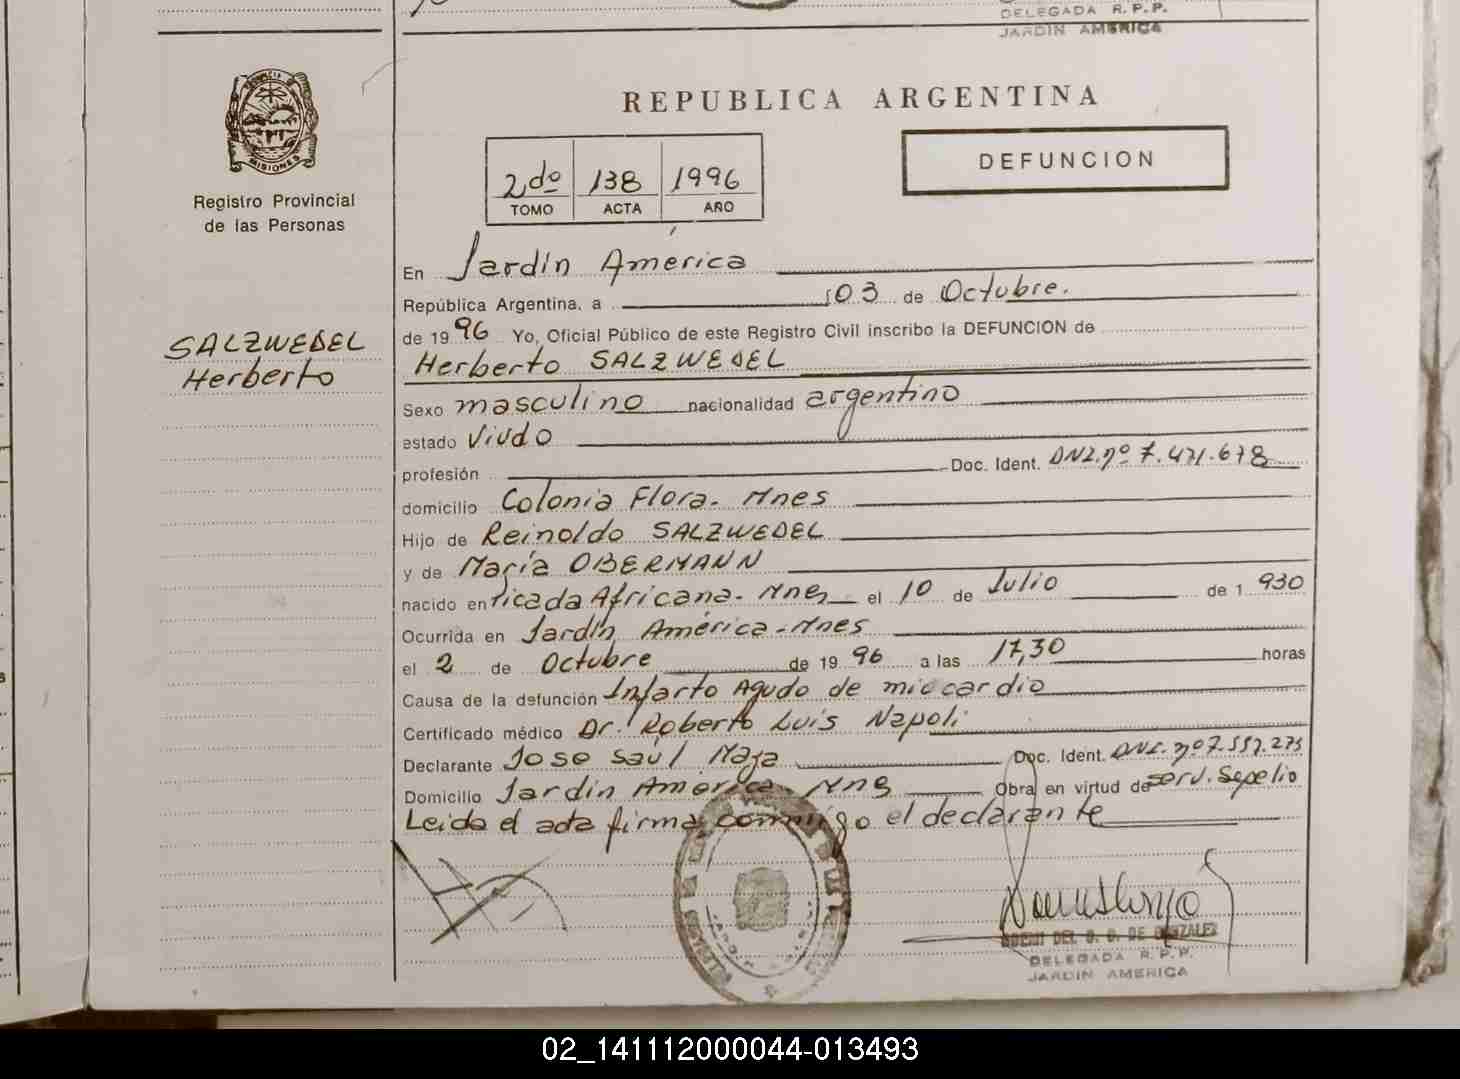 DELEGADA R.P.P.
JARDIN AMERICA
PROVINCIA
MISIONES
Registro Provincial
de las Personas
SALZWEDEL
Herberto
REPUBLICA ARGENTINA
2do 138 1996
TOMO ACTA AÑO
DEFUNCION
En Jardín América
República Argentina, a 03 de Octubre.
de 1996 Yo, Oficial Público de este Registro Civil inscribo la DEFUNCION de
Herberto SALZWEDEL
Sexo masculino nacionalidad argentino
estado Viudo
profesión Doc. Ident. DNI.nº 7.471.678
domicilio Colonia Flora. Mnes
Hijo de Reinoldo SALZWEDEL
y de María OBERMANN
nacido en Picada Africana. Mnes el 10 de Julio de 1930
Ocurrida en Jardín América-Mnes
el 2 de Octubre de 1996 a las 17,30 horas
Causa de la defunción Infarto Agudo de miocardio
Certificado médico Dr. Roberto Luis Napoli
Declarante Jose Saúl Doc. Ident. DNI. nº
Domicilio Jardín América. Mns Obra en virtud de serv. Sepelio
Leida el acta firma conmigo el declarante
DEL DE GONZALEZ
DELEGADA R.P.P.
JARDIN AMERICA
02_141112000044-013493